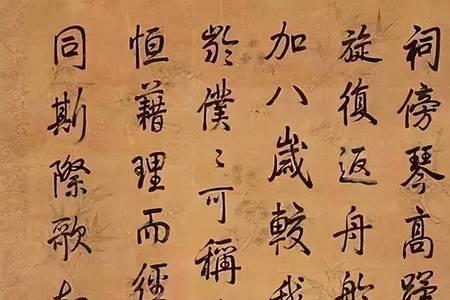 祠傍琴高
旋復返舟
加八歲較我
於僕々可稱
恒藉理而
同斯際歌